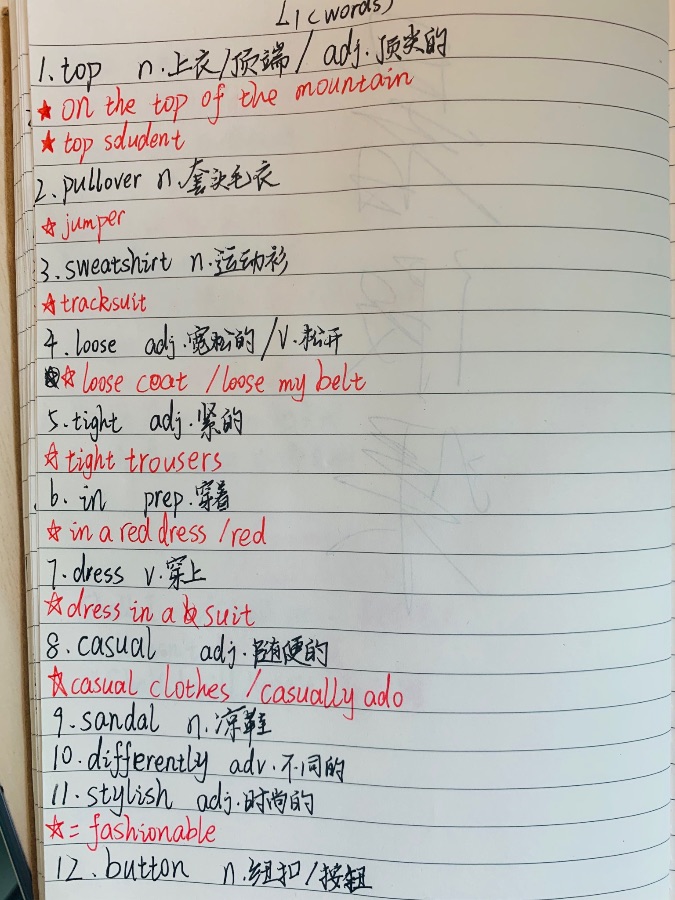 L1(words)
1.top n.上衣/顶端/ adj.顶尖的
★on the top of the mountain
★top sdudent
2.pullover n.套头毛衣
☆jumper
3.sweatshirt n.运动衫
☆tracksuit
4.loose adj.宽松的/v.松开
☆loose coat /loose my belt
5.tight adj.紧的
☆tight trousers
6.in prep.穿着
☆in a red dress /red
7.dress v.穿上
☆dress in a suit
8.casual adj.随便的
☆casual clothes /casually ado
9.sandal n.凉鞋
10.differently adv.不同的
11.stylish adj.时尚的
☆=fashionable
12.button n.纽扣/按钮